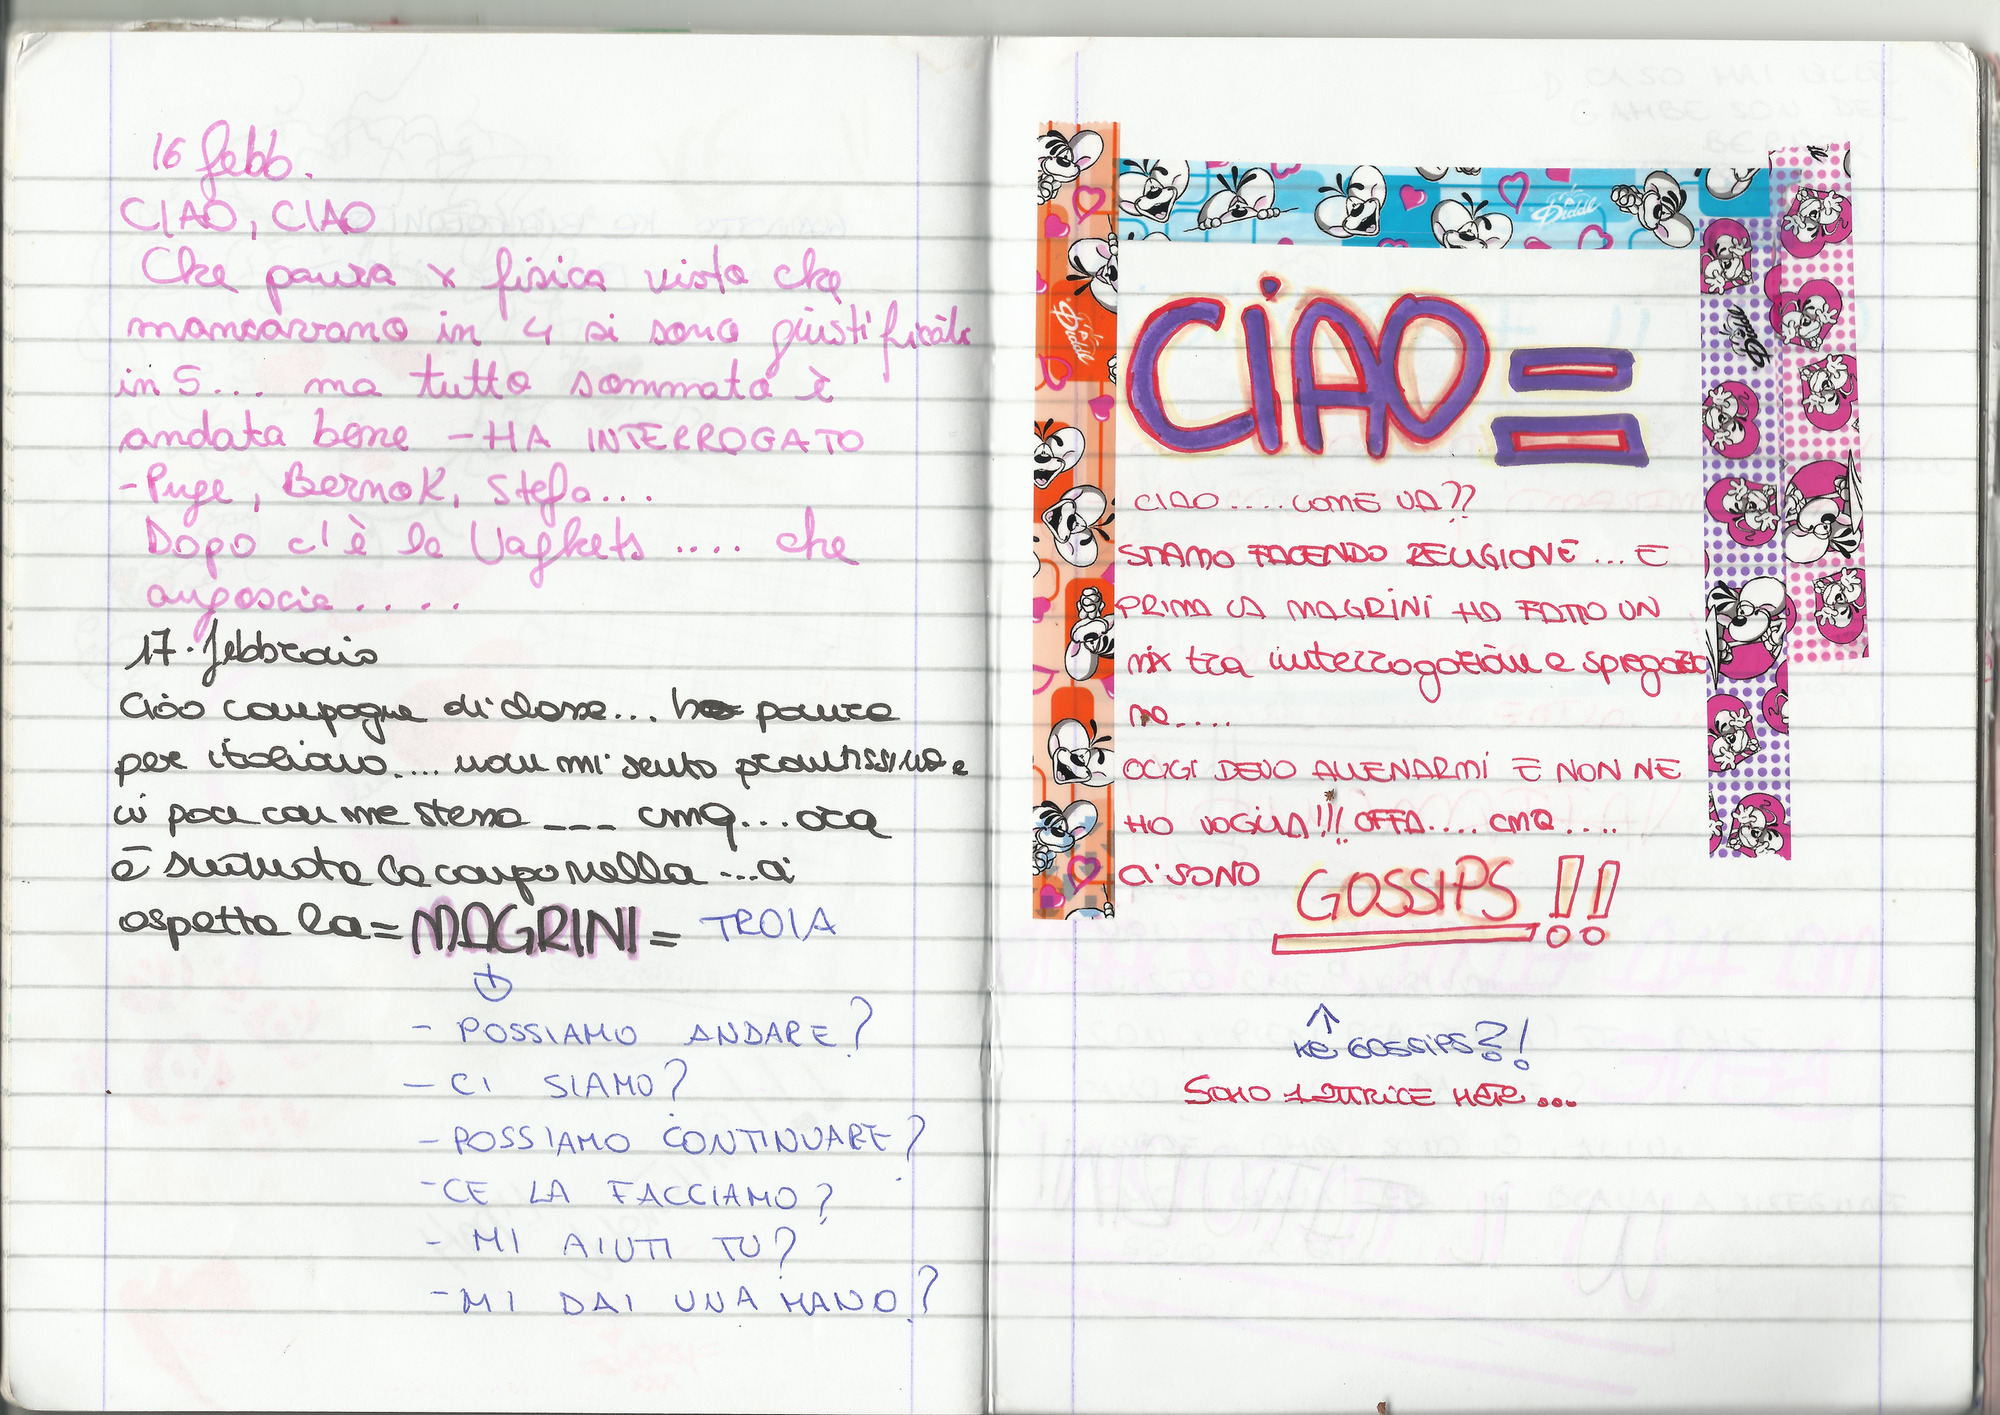 16 febb.
CIAO, CIAO
Che paura x fisica visto che
mancavano in 4 si sono giustificati
in 5... ma tutto sommato è
andata bene - HA INTERROGATO
- Puge, BernoK, Stefa...
Dopo c'è la Vagkets .... che
angoscia.....
17 febbraio
Ciao compagne di classe... ho paura
per italiano.... non mi sento prontissima e
ci poca con me stessa --- cmq...ora
è suonata la campanella ...ci
aspetta la = MAGRINI = TROIA
- POSSIAMO ANDARE?
- CI SIAMO?
- POSSIAMO CONTINUARE?
- CE LA FACCIAMO?
- MI AIUTI TU?
- MI DAI UNA MANO?
Diddl
Diddl
Diddl
CIAO =
CIAO ....COME VA??
STIAMO FACENDO RELIGIONE ... E
PRIMA LA MAGRINI HA FATTO UN
mix tra interrogazione e spiegazio
ne....
OGGI DEVO ALLENARMI E NON NE
HO VOGLIA!!! OFFA.... CMQ ....
CI SONO GOSSIPS!!
KE GOSSIPS?!
SONO